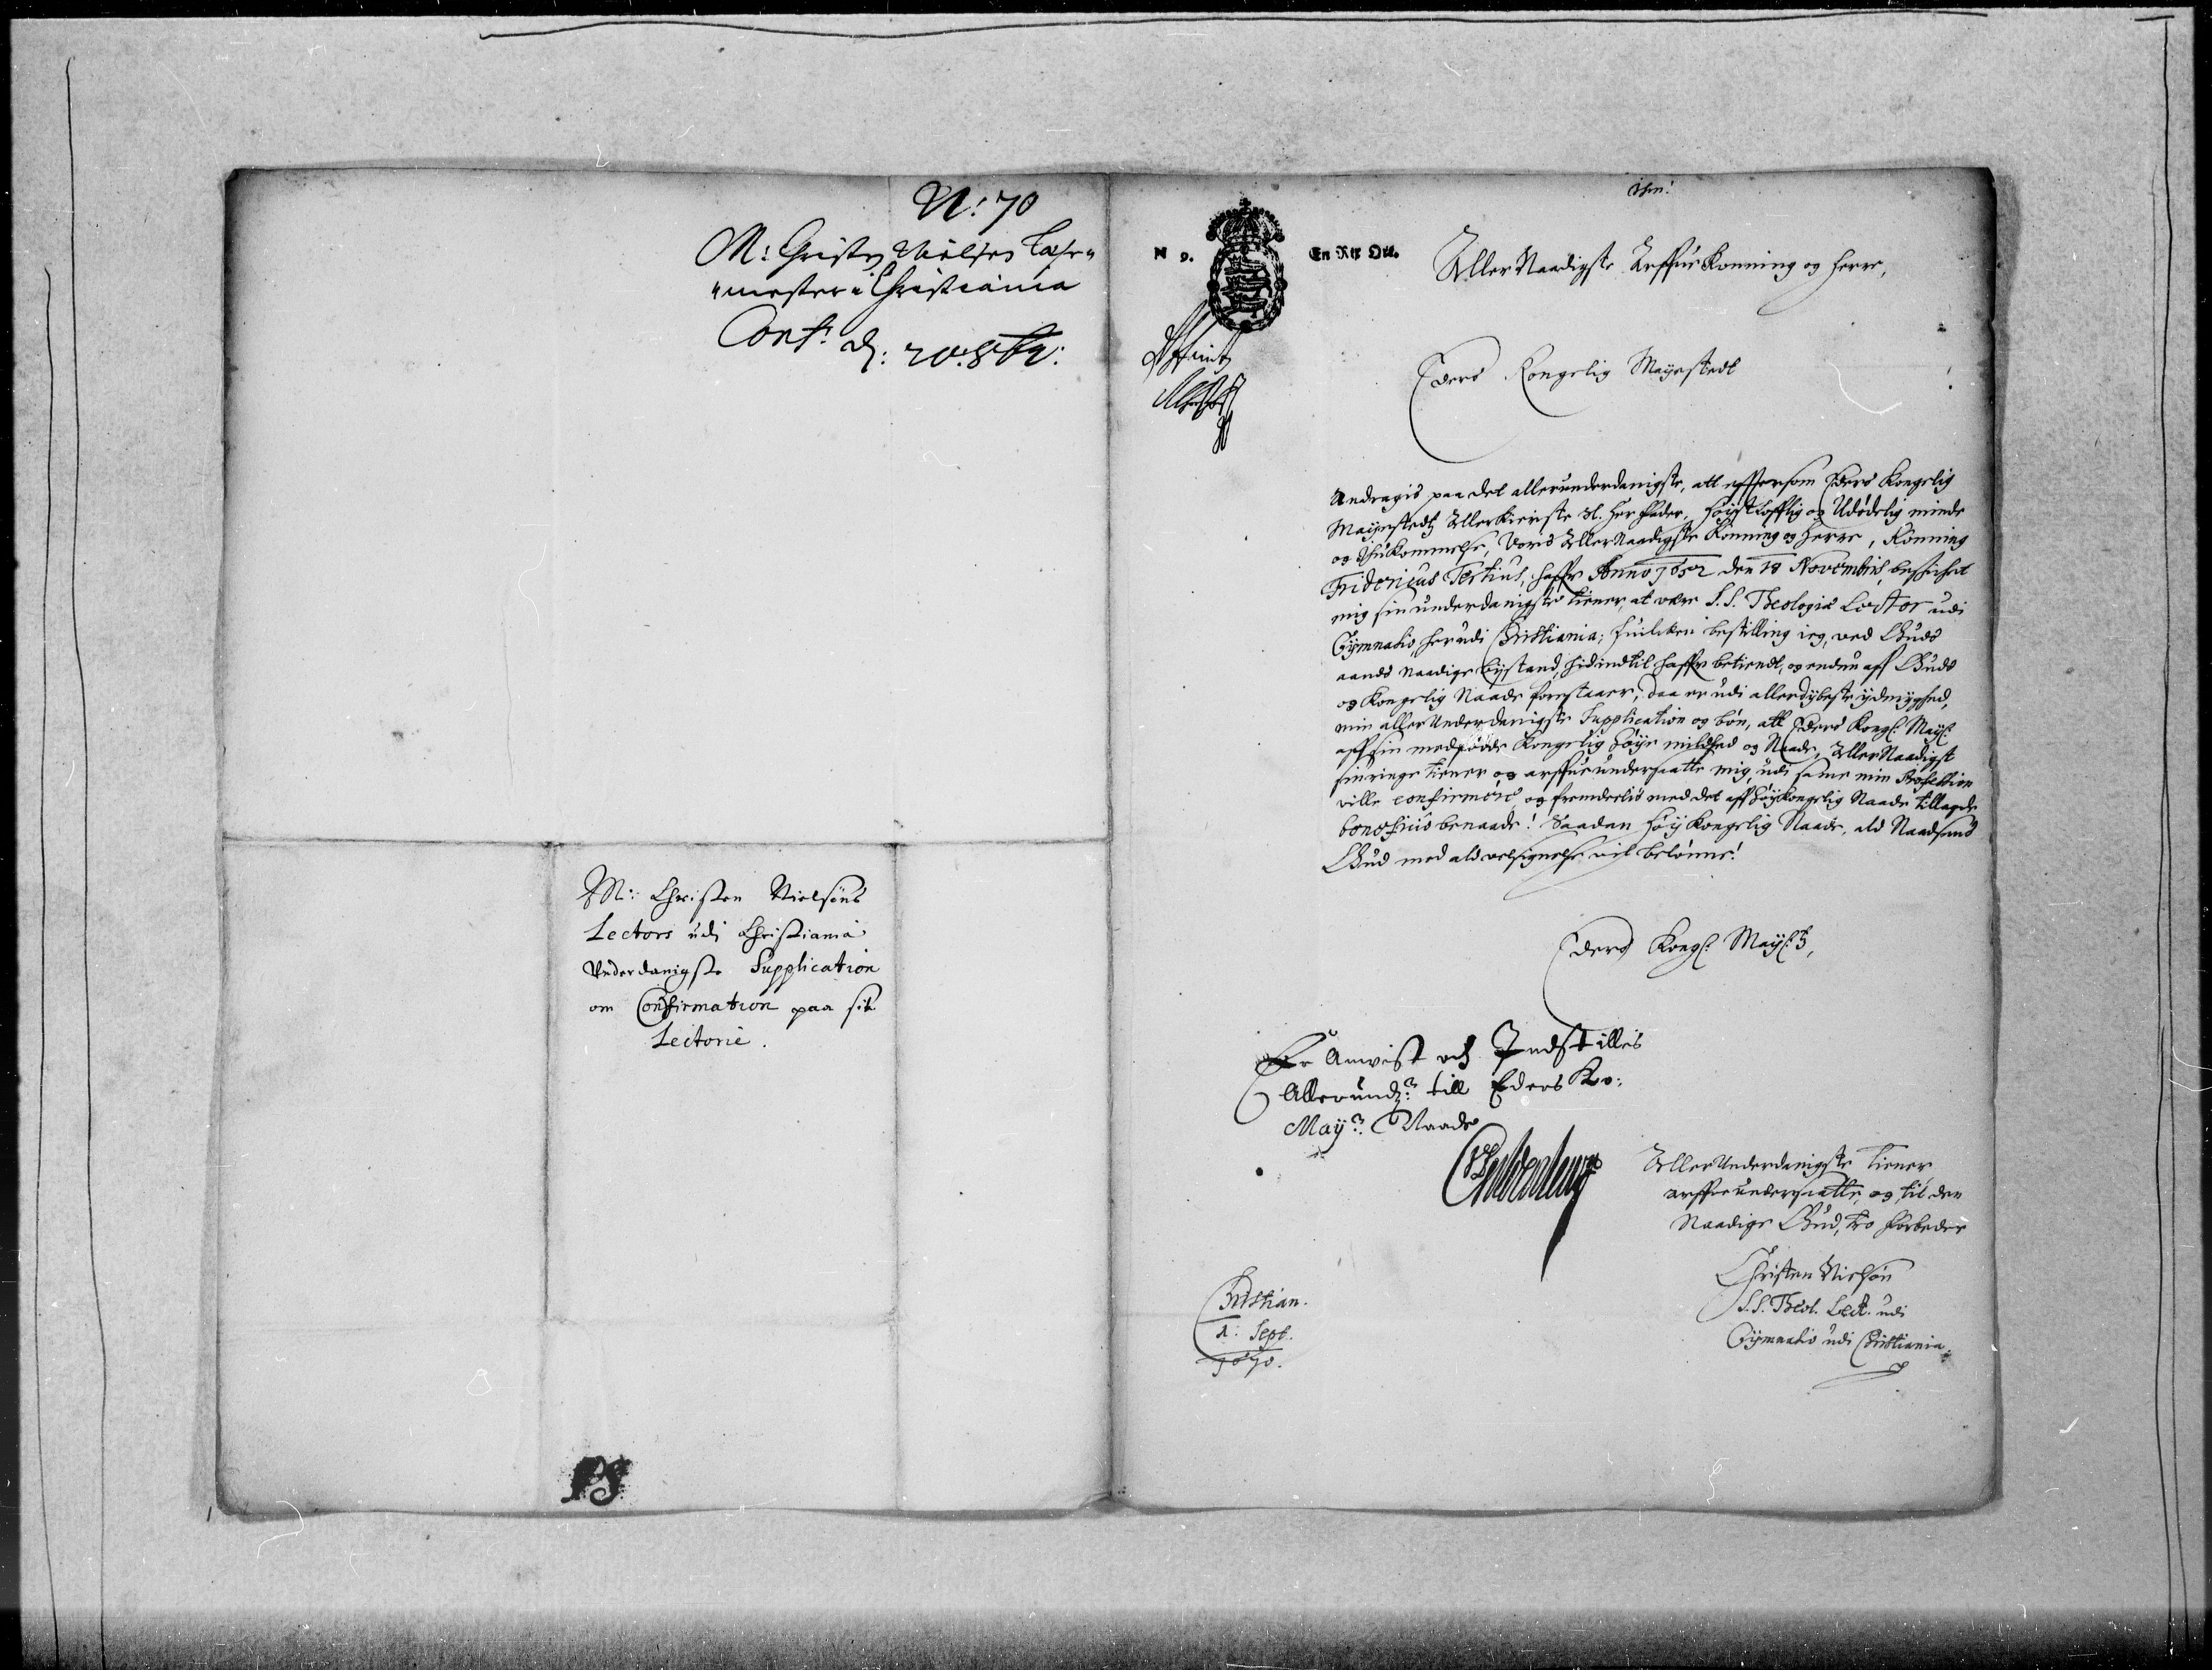 N: 70
M: Christen Nielsen Læse-
-mester i Christiania
Conf: d: 20. 8br:
M: Christen Nielsöns
Lectors udi Christiania
Underdanigste Supplication
om Confirmation paa sit
Lectorie.
PS
N 9. En Rix Ort.
Aller Naadigste Arffue Konning og Herre,
Eders Kongelig Mayestedt
Andragis paa det allerunderdanigste, att efftersom Eders Kongelig
Mayestedtz Aller Kieriste Sl. Her Fader, Høyst Lofflig og Udødelig minde
og Ihukommelse, Voris Aller Naadigste Konning og Herre, Konning
Fridericus Tertius, haffr Anno 1652 den 18 Novembris, beskicket
mig sin underdanigste tiener, at være S.S. Theologiæ Lector udi
Gymnasio, her udi Christiania; huilcken bestilling ieg, ved Guds
aands naadige bijstand, hid indtil haffr betiendt, og endnu aff Guds
og Kongelig Naade forestaaer; Daa er udi allerdybeste ydmyghed,
min aller Underdanigste Supplication og bøn, att Eders Kongl: Mayl:
aff sin medfødde Kongelig Høye mildhed og Naade, Aller Naadigst
sin ringe tiener og arffue undersaatte mig, udi samme min Profession
ville confirmere, og fremdeelis med det aff Høy Kongelig Naade tillagde
beneficiis benaade! Saadan Høy Kongelig Naade, ald Naadsens
Gud med ald velsignelse vil belønne!
Eders Kongl: Mayl:tz,
Er Anvist och Indstillis
Allerund: till Eders Ko:
May: Naade
Gyldenleuw
Aller Underdanigste tiener
arffue undersaatte, og til den
Naadige Gud, tro forbeder
Christen Nielsøn
S.S. Theol. Lect. udi
Gymnasio udi Christiania.
Christian.
1: Sept.
1670.